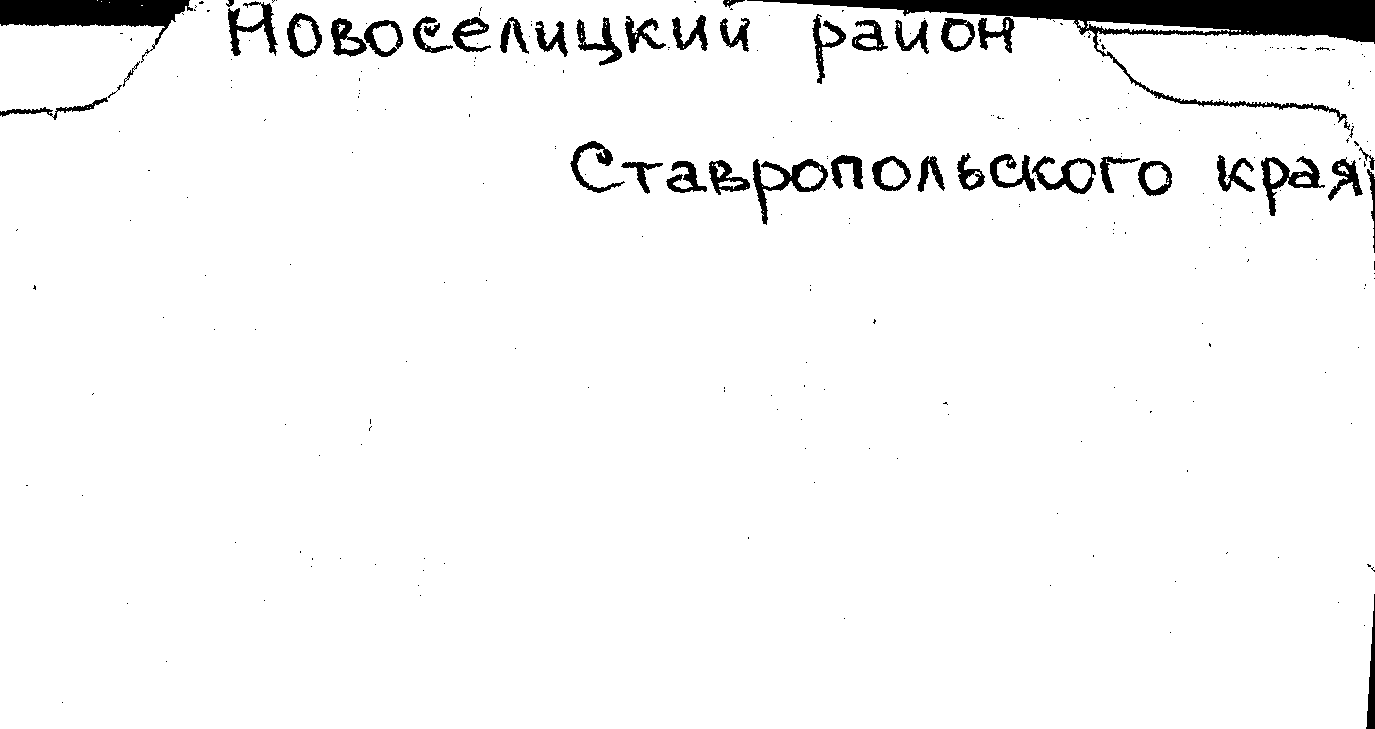 Новоселицкий район
Ставропольского края